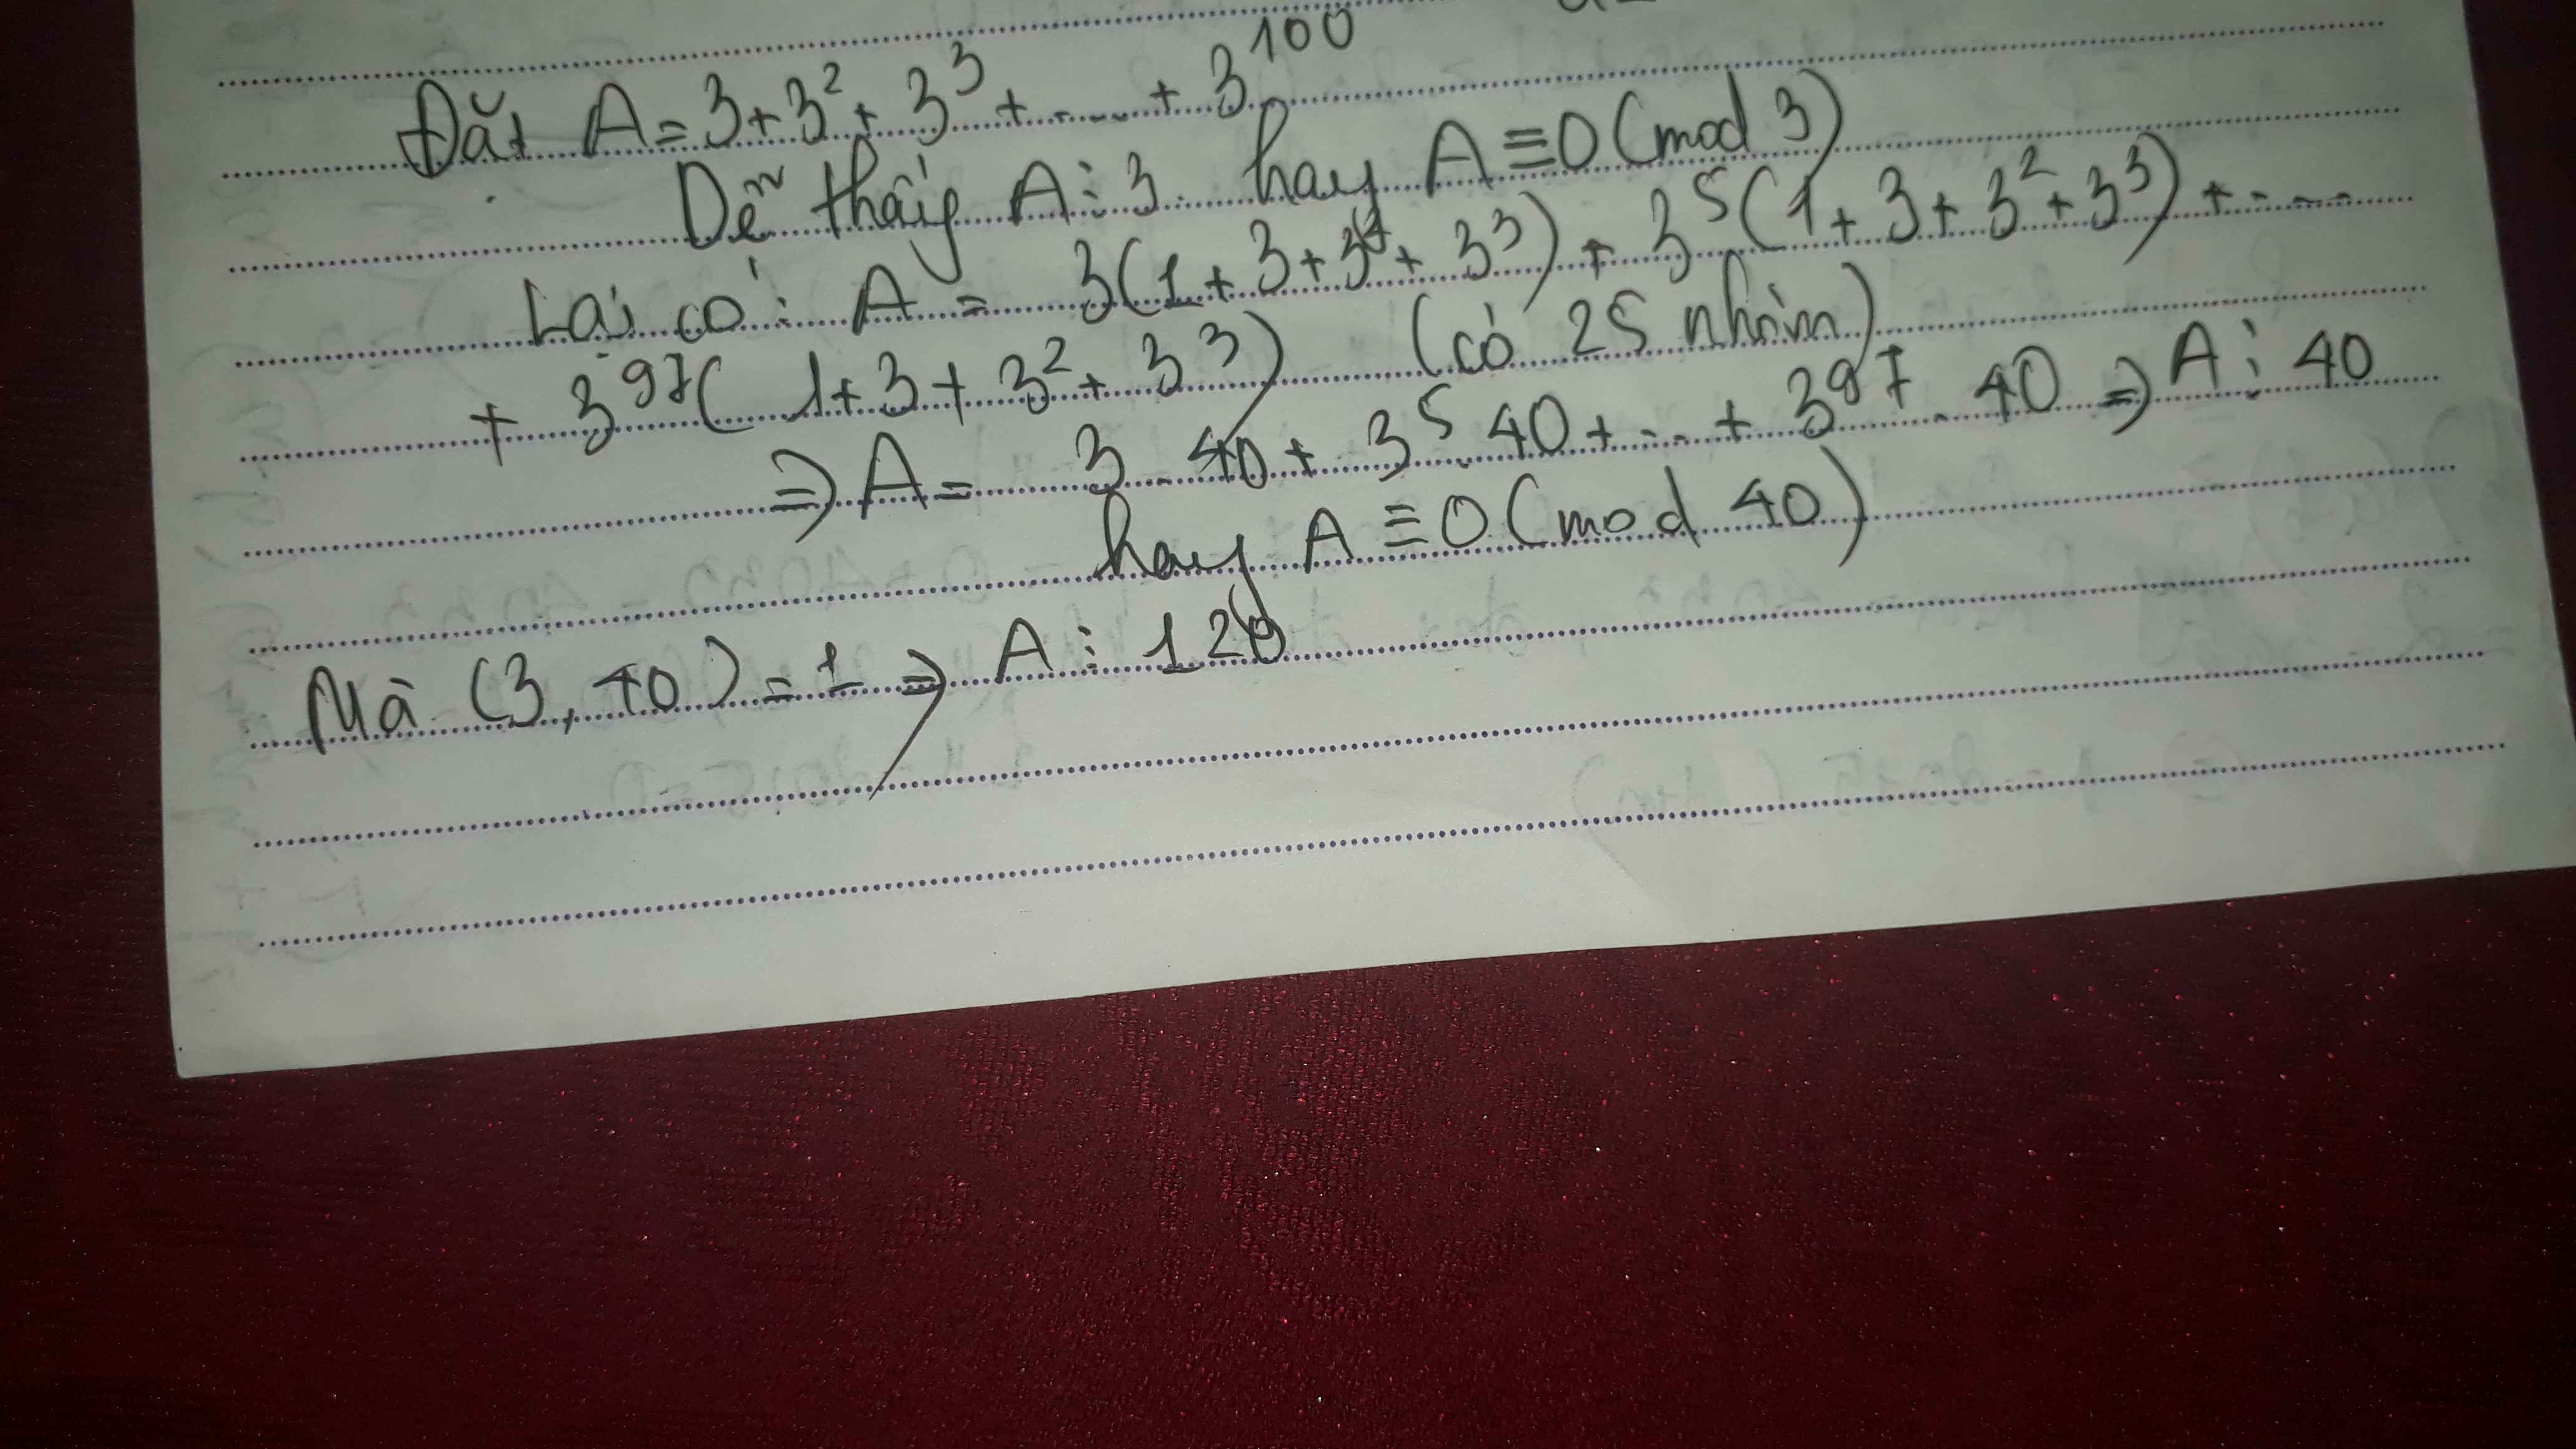 Đặt A = 3 + 3² + 3³ + ... + 3¹⁰⁰
Dễ thấy A ⋮ 3 hay A ≡ 0 (mod 3)
Lại có: A = 3(1 + 3 + 3² + 3³) + 3⁵(1 + 3 + 3² + 3³) + ...
+ 3⁹⁷(1 + 3 + 3² + 3³) (có 25 nhóm)
⇒ A = 3 . 40 + 3⁵ . 40 + ... + 3⁹⁷ . 40 ⇒ A ⋮ 40
hay A ≡ 0 (mod 40)
Mà (3, 40) = 1 ⇒ A ⋮ 120